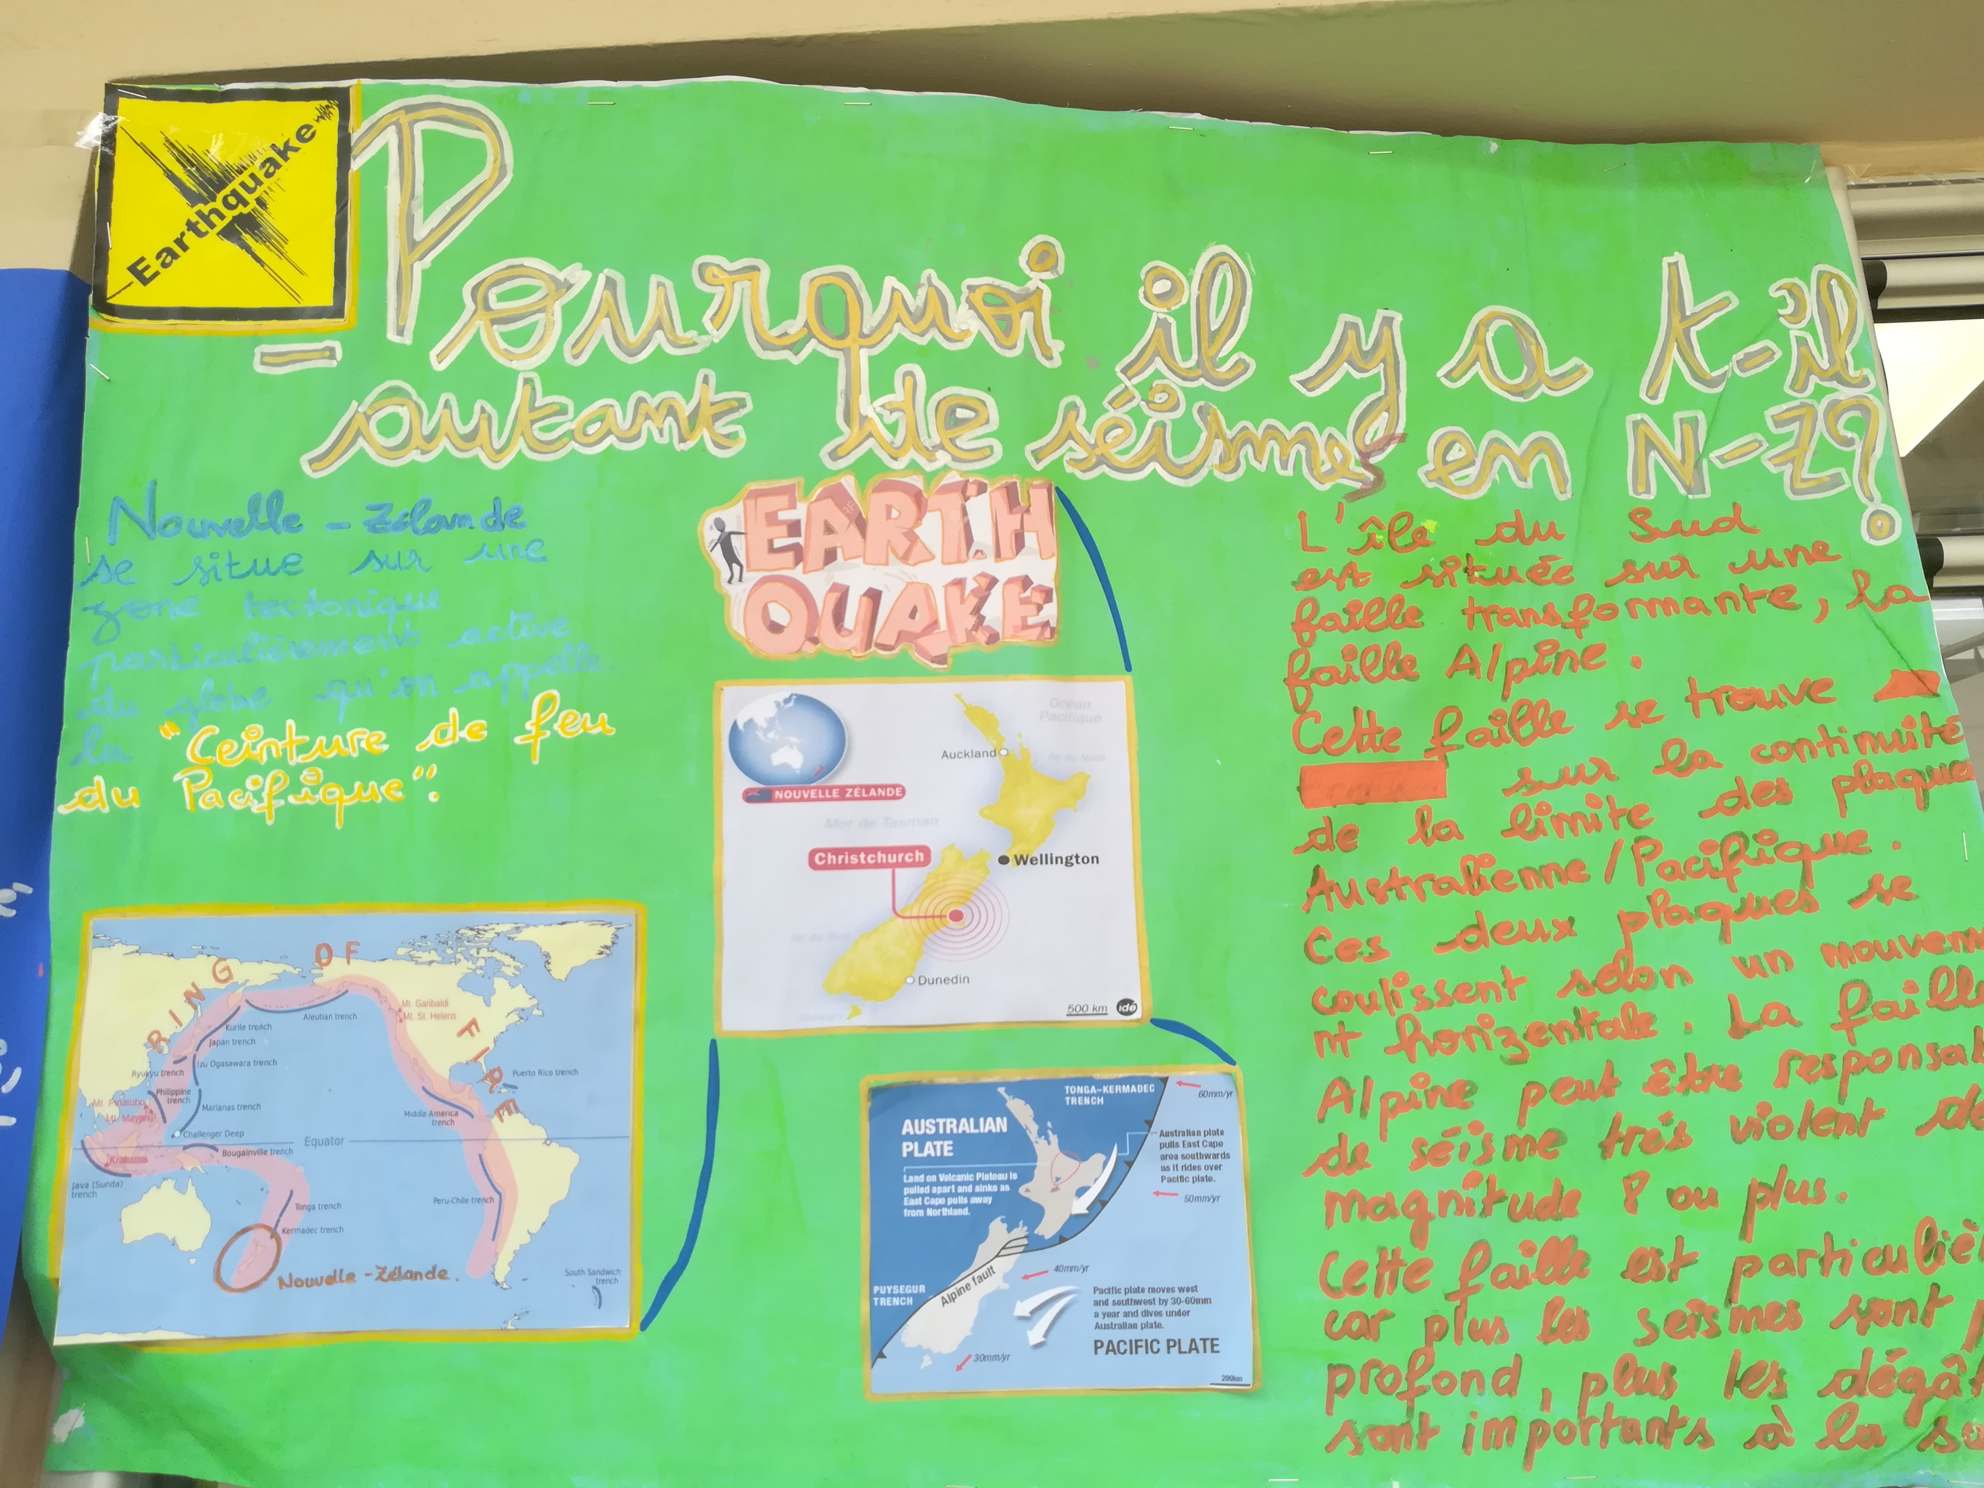 Earthquake
Pourquoi il y a t-il
autant de séismes en N-Z?
Nouvelle-Zélande
se situe sur une
zone tectonique
particulièrement active
du globe qu'on appelle
la "Ceinture de feu
du Pacifique".
EARTH
QUAKE
Océan
Pacifique
Auckland
NOUVELLE ZÉLANDE
Mer de Tasman
Christchurch
Wellington
Dunedin
500 km
idé
RING OF FIRE
Mt. Garibaldi
Mt. St. Helens
Aleutian trench
Kurile trench
Japan trench
Izu Ogasawara trench
Ryukyu trench
Puerto Rico trench
Philippine
trench
Mt. Pinatubo
Mt. Mayon
Marianas trench
Middle America
trench
Challenger Deep
Equator
Bougainville trench
Krakatoa
Java (Sunda)
trench
Tonga trench
Peru-Chile trench
Kermadec trench
Nouvelle-Zélande.
South Sandwich
trench
TONGA-KERMADEC
TRENCH
60mm/yr
AUSTRALIAN
PLATE
Australian plate
pulls East Cape
area southwards
as it rides over
Pacific plate.
Land on Volcanic Plateau is
pulled apart and sinks as
East Cape pulls away
from Northland.
50mm/yr
40mm/yr
PUYSEGUR
TRENCH
Alpine fault
Pacific plate moves west
and southwest by 30-60mm
a year and dives under
Australian plate.
PACIFIC PLATE
30mm/yr
200km
L'île du Sud
est située sur une
faille transformante, la
faille Alpine.
Cette faille se trouve
sur la continuité
de la limite des plaque
Australienne/Pacifique.
Ces deux plaques se
coulissent selon un mouveme
nt horizentale. La faille
Alpine peut être responsab
de séisme trés violent de
magnitude 8 ou plus.
Cette faille est particuliè
car plus les seismes sont
profond, plus les dégât
sont importants à la